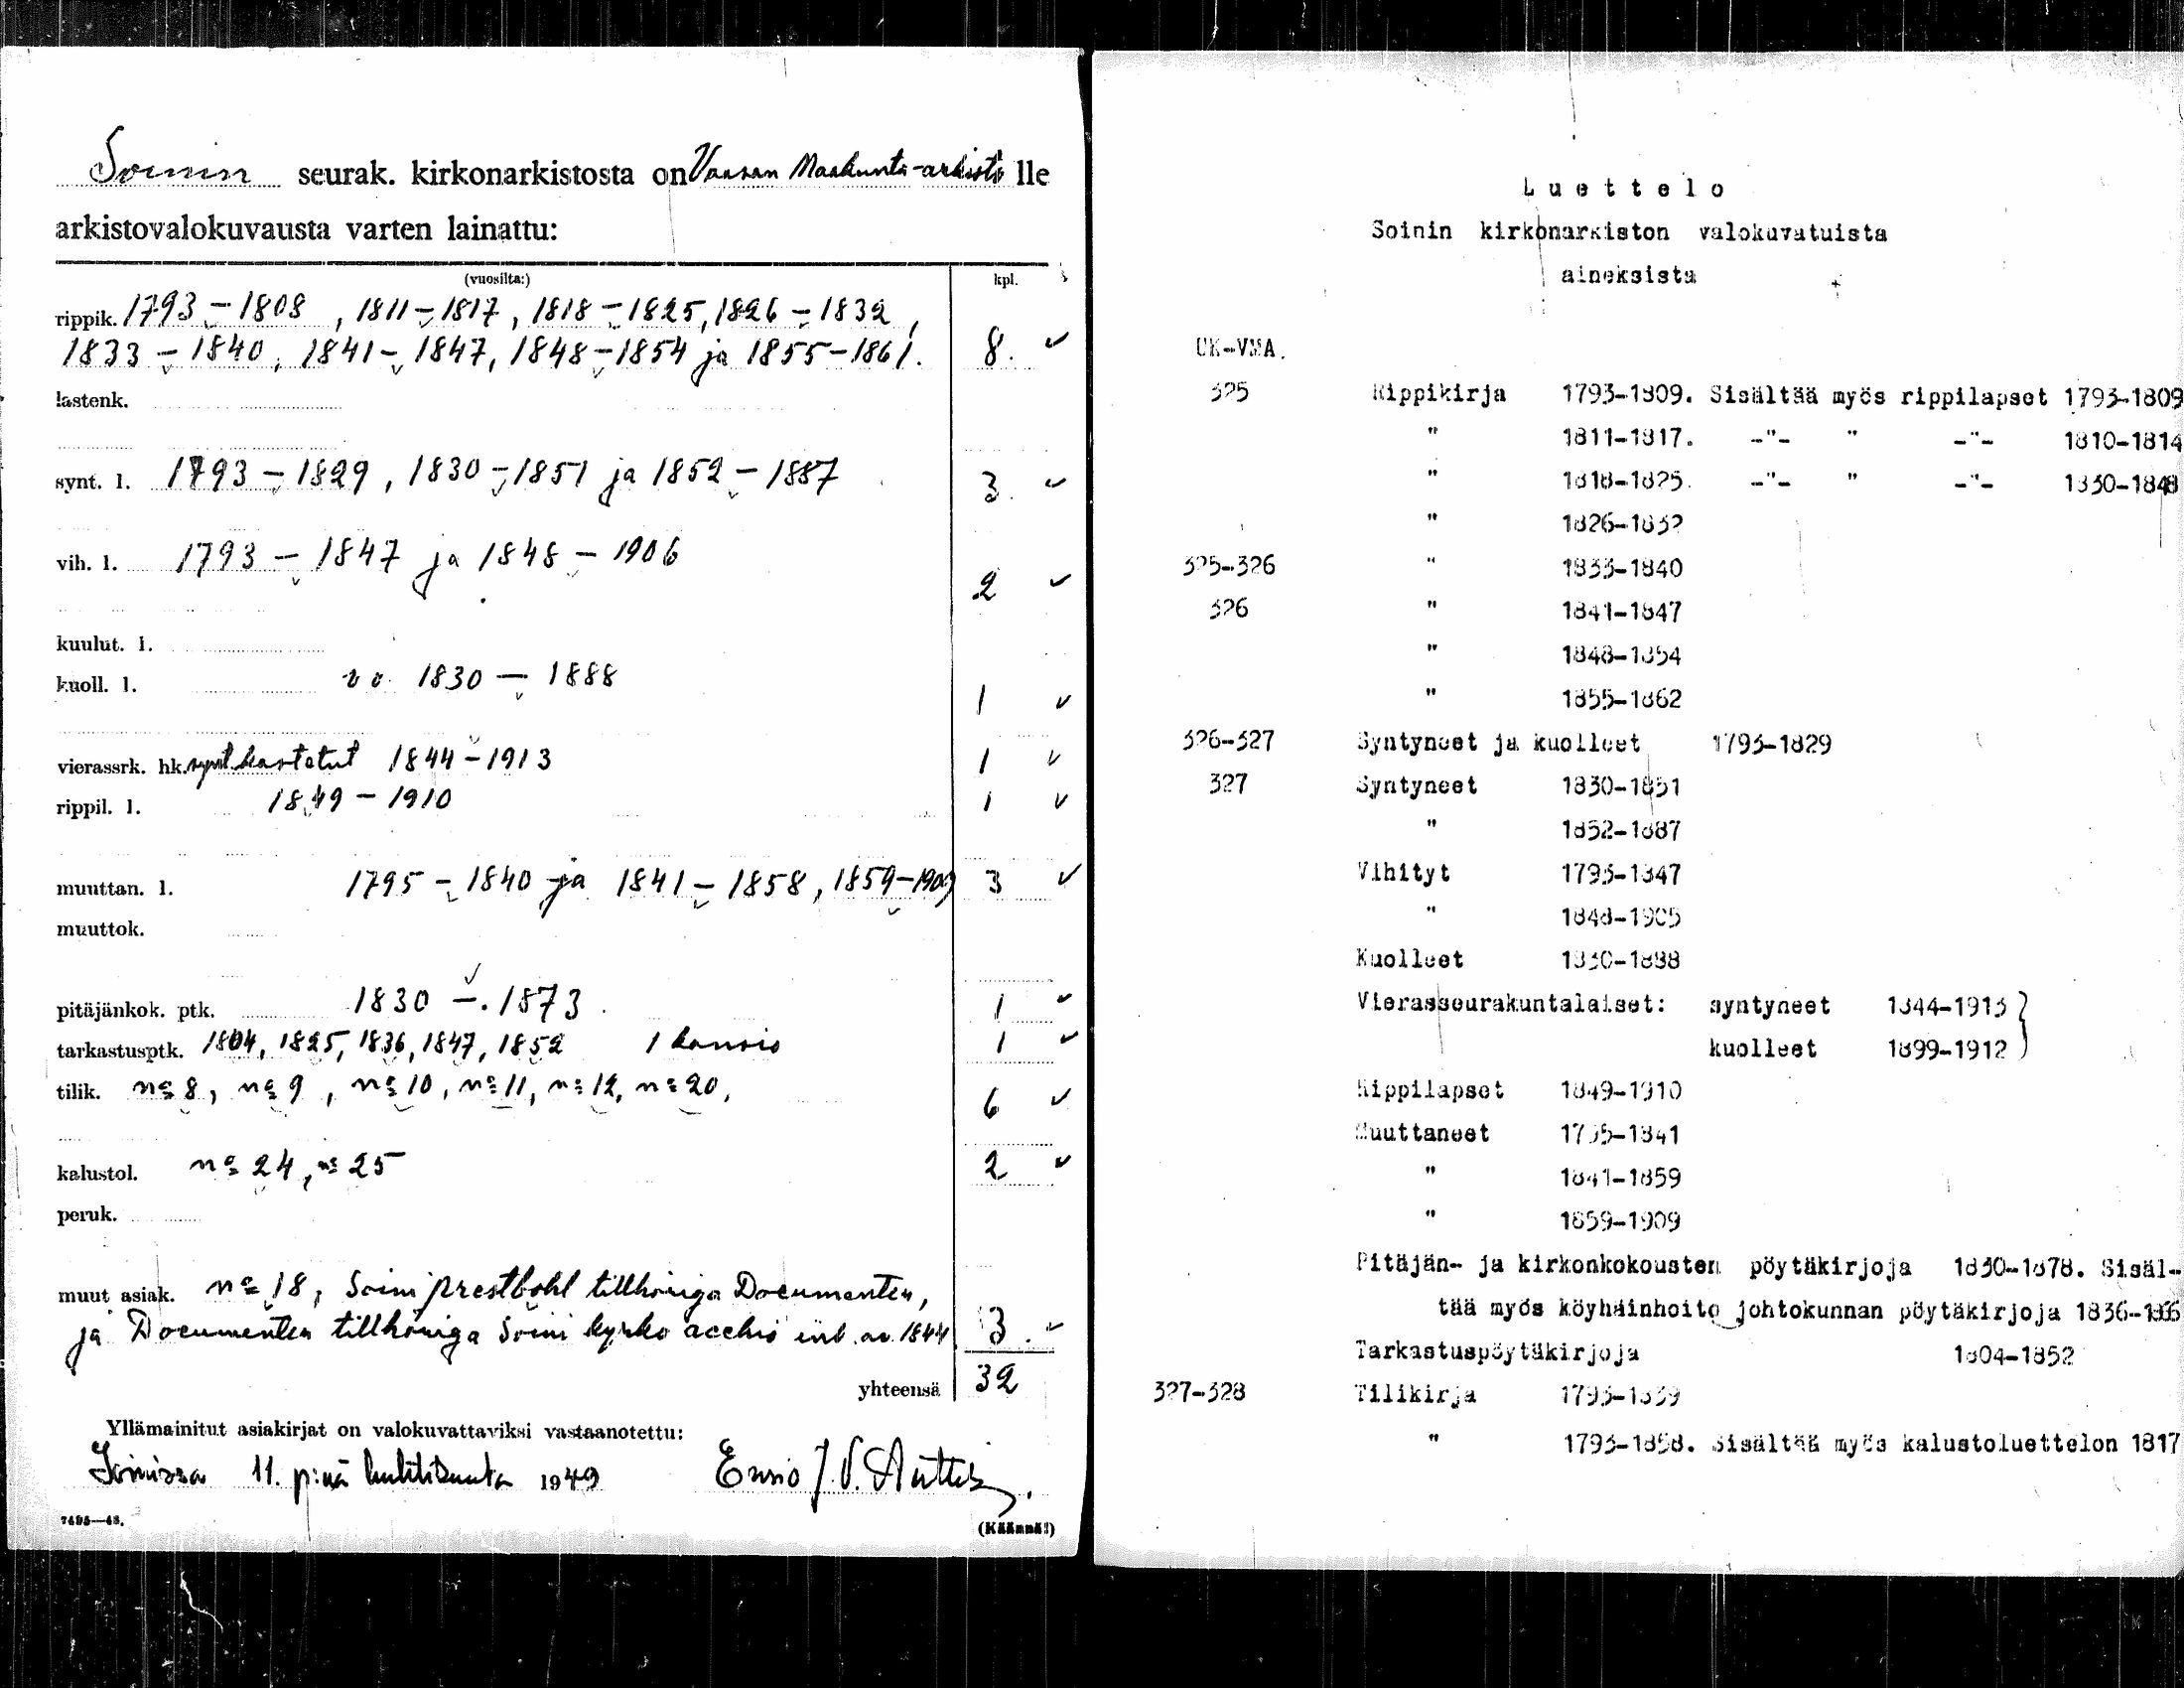 Soinin seurak. kirkonarkistosta on Vaasan Maakunta-arkisto lle
arkistovalokuvausta varten lainattu:
(vuosilta:) kpl.
rippik. 1793 – 1808, 1811 – 1817, 1818 – 1825, 1826 – 1832,
1833 – 1840, 1841 – 1847, 1848 – 1854 ja 1855 – 1861. 8. ✓
lastenk.
synt. l. 1793 – 1829, 1830 – 1851 ja 1852 – 1887 3. ✓
vih. l. 1793 – 1847 ja 1848 – 1906
2 ✓
kuulut. l.
kuoll. l. v.v. 1830 – 1888
1 ✓
vierassrk. hk. synt. kastetut 1844 – 1913 1 ✓
rippil. l. 1849 – 1910 1 ✓
muuttan. l. 1795 – 1840 ja 1841 – 1858, 1859 – 1909 3 ✓
muuttok.
pitäjänkok. ptk. 1830 –. 1873. 1 ✓
tarkastusptk. 1804, 1825, 1836, 1847, 1852 1 kansio 1 ✓
tilik. no 8, no 9, no 10, no 11, no 12, no 20, 6 ✓
kalustol. no 24, no 25 2 ✓
peruk.
muut asiak. no 18, Soini prestbohl tillhöriga Documenten,
ja Documenten tillhöriga Soini kyrko 1844 3. ✓
yhteensä 32
Yllämainitut asiakirjat on valokuvattaviksi vastaanotettu:
Soinissa 11. p:nä huhtikuuta 1949 Ensio J. V.
7495—48. (Käännä!)
Luettelo
Soinin kirkonarkiston valokuvatuista
aineksista
UK-VMA.
325 Rippikirja 1793-1809. Sisältää myös rippilapset 1793-1809
" 1811-1817. -"- " -"- 1810-1814
" 1818-1825. -"- " -"- 1830-1848
" 1826-1832
325-326 " 1833-1840
326 " 1841-1847
" 1848-1854
" 1855-1862
326-327 Syntyneet ja kuolleet 1793-1829
327 Syntyneet 1830-1851
" 1852-1887
Vihityt 1793-1847
" 1848-1905
Kuolleet 1830-1888
Vierasseurakuntalaiset: syntyneet 1844-1913 }
kuolleet 1899-1912
Rippilapset 1849-1910
Muuttaneet 1795-1841
" 1841-1859
" 1859-1909
Pitäjän- ja kirkonkokousten pöytäkirjoja 1830-1878. Sisäl-
tää myös köyhäinhoito johtokunnan pöytäkirjoja 1836-
Tarkastuspöytäkirjoja 1804-1852
327-328 Tilikirja 1793-1839
" 1793-1858. Sisältää myös kalustoluettelon 1817